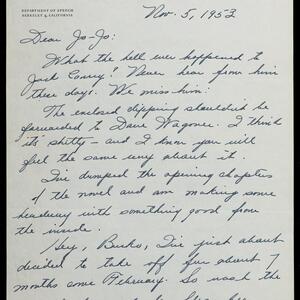 DEPARTMENT OF SPEECH
BERKELEY 4, CALIFORNIA
Nov. 5, 1953
Dear Jo-Jo:
What the hell ever happened to
Jack Conroy? Never hear from him
these days. We miss him.
The enclosed clipping should be
forwarded to Dave Wagoner. I think
it's shitty – and I know you will
feel the same way about it.
I've dumped the opening chapters
of the novel and am making some
headway with something good from
the inside.
Hey, Bucko, I've just about
decided to take off for about 7
months come February. So the